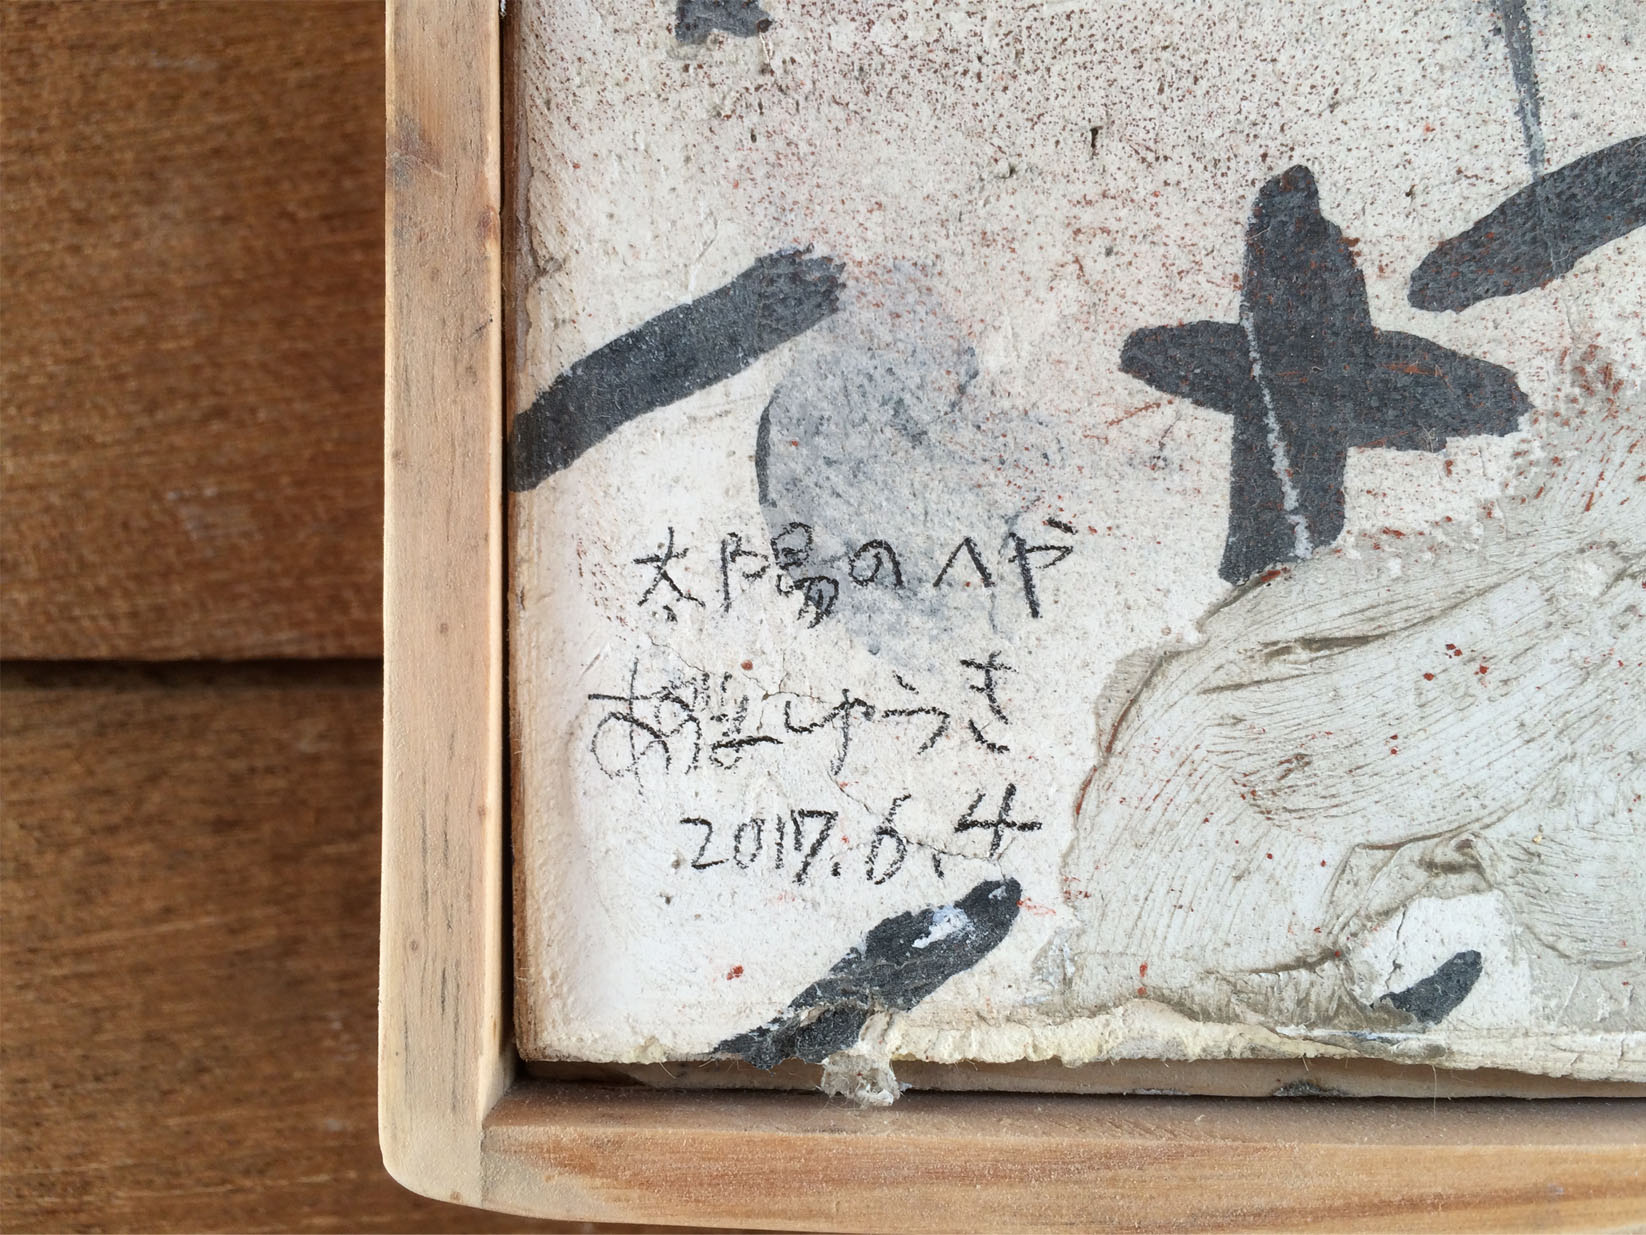 太陽のへや
おがましゅうき
2017.6.4